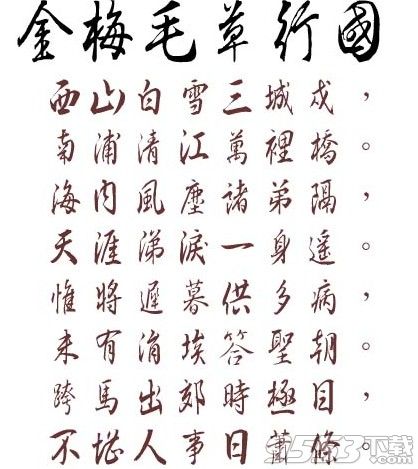 金梅毛草行國
西山白雪三城戍，
南浦清江萬裡橋。
海內風塵諸弟隔，
天涯涕淚一身遙。
惟將遲暮供多病，
未有涓埃答聖朝。
跨馬出郊時極目，
不堪人事日蕭條
9553下载